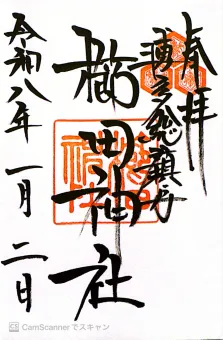 奉拝
博多総鎮守
櫛田神社
令和八年一月二日
CamScannerでスキャン